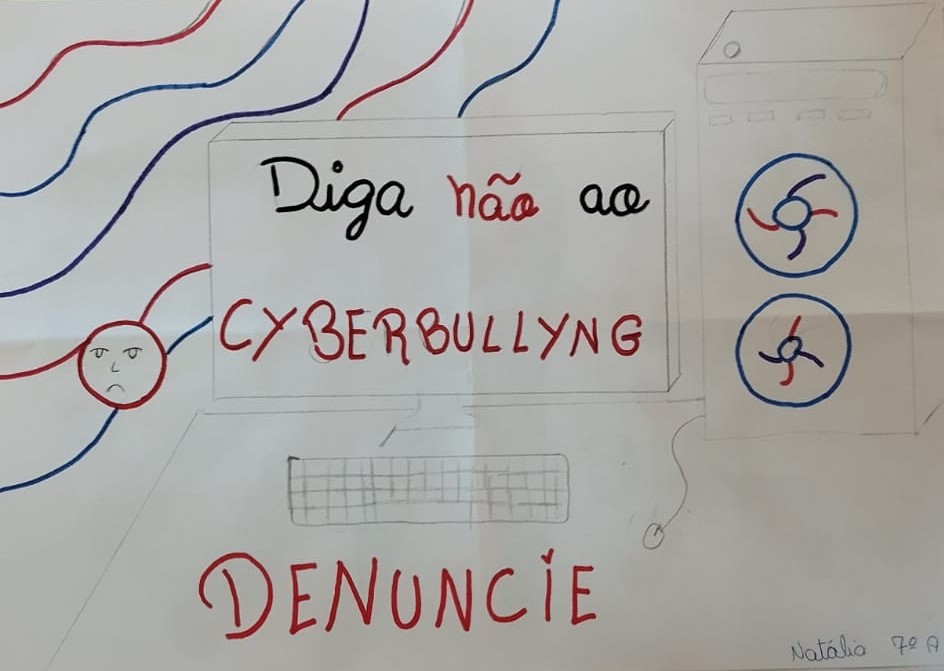 Diga não ao
CYBERBULLYNG
DENUNCIE
Natália 7º A